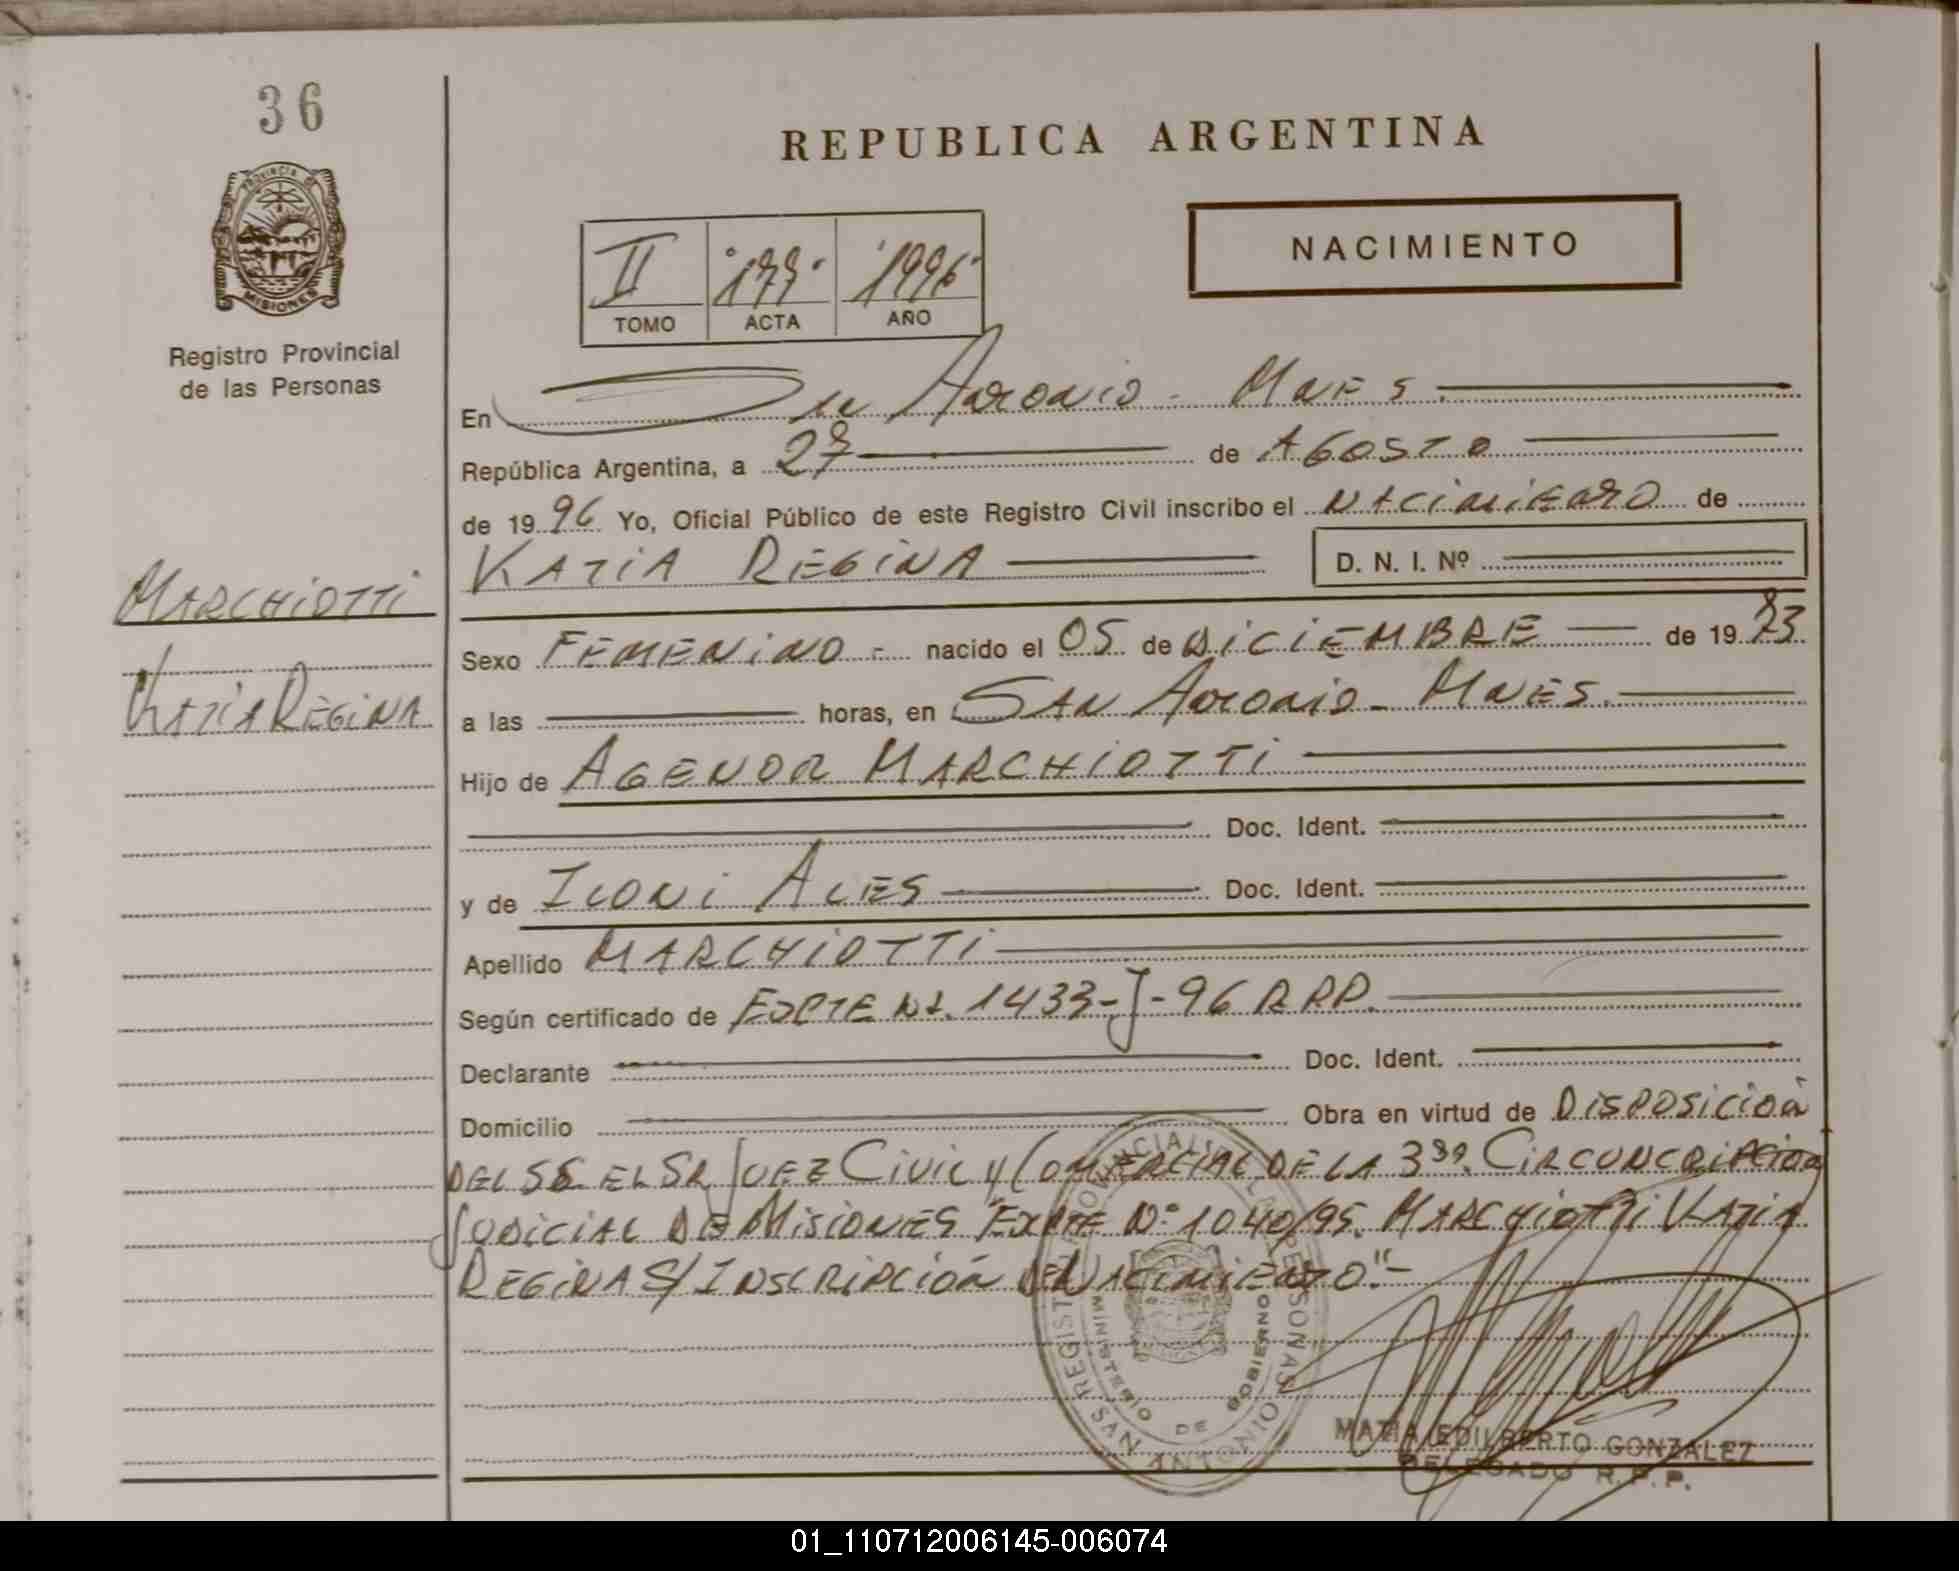 36
PROVINCIA DE
MISIONES
Registro Provincial
de las Personas
MARCHIOTTI
KATIA REGINA
REPUBLICA ARGENTINA
NACIMIENTO
II 1996
TOMO ACTA AÑO
En San Antonio - Mnes.
República Argentina, a 27 de AGOSTO
de 1996 Yo, Oficial Público de este Registro Civil inscribo el NACIMIENTO de
KATIA REGINA D. N. I. Nº
Sexo FEMENINO - nacido el 05 de DICIEMBRE de 19
a las horas, en SAN Antonio - MNES.
Hijo de AGENOR MARCHIOTTI
Doc. Ident.
y de ILONI ALVES Doc. Ident.
Apellido MARCHIOTTI
Según certificado de EXPTE Nº. 1433-J-96 RPP.
Declarante Doc. Ident.
Domicilio Obra en virtud de DISPOSICIÓN
DEL SS. EL SR JUEZ CIVIL Y COMERCIAL DE LA 3ra. CIRCUNCRIPCION
JUDICIAL DE MISIONES EXPTE Nº 1040/95. MARCHIOTTI KATIA
REGINA S/ INSCRIPCIÓN DE NACIMIENTO".-
REGISTRO PROVINCIAL DE LAS PERSONAS
MINISTERIO DE GOBIERNO
SAN ANTONIO
MATIA EDILBERTO GONZALEZ
DELEGADO R.P.P.
01_110712006145-006074